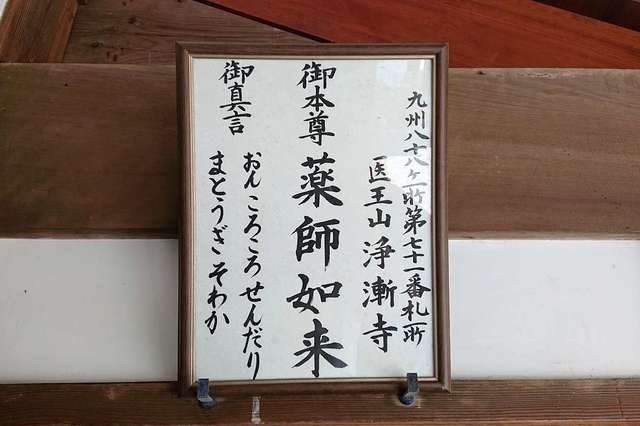 九州八十八ヶ所第七十一番札所
医王山浄漸寺
御本尊 薬師如来
御真言 おんころころせんだり
まとうぎそわか